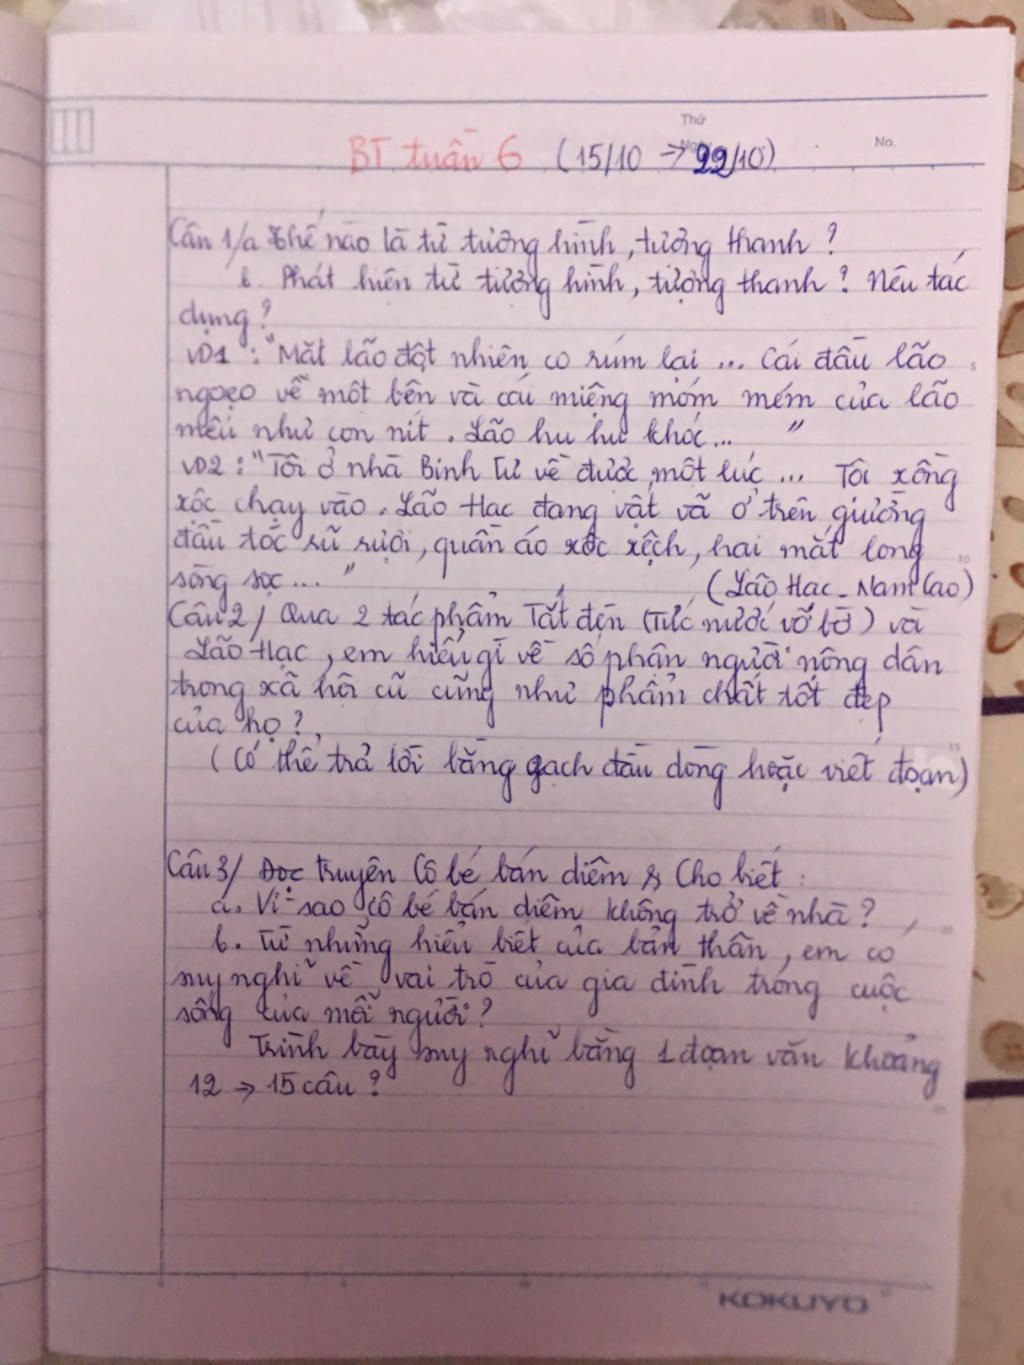 Thứ
Ngày
No.
BT tuần 6 (15/10 → 22/10)
Câu 1/a Thế nào là từ tượng hình, tượng thanh?
b. Phát hiện từ tượng hình, tượng thanh? Nêu tác
dụng?
VD1 : "Mặt lão đột nhiên co rúm lại ... Cái đầu lão
ngoẹo về một bên và cái miệng móm mém của lão
mếu như con nít. Lão hu hu khóc... "
VD2 : "Tôi ở nhà Binh Tư về được một lúc ... Tôi xồng
xộc chạy vào. Lão Hạc đang vật vã ở trên giường
đầu tóc rũ rượi, quần áo xộc xệch, hai mắt long
sòng sọc ... "
(Lão Hạc _ Nam Cao)
Câu 2/ Qua 2 tác phẩm Tắt đèn (Tức nước vỡ bờ) và
Lão Hạc, em hiểu gì về số phận người nông dân
trong xã hội cũ cũng như phẩm chất tốt đẹp
của họ?
(Có thể trả lời bằng gạch đầu dòng hoặc viết đoạn)
Câu 3/ Đọc truyện Cô bé bán diêm & Cho biết :
a. Vì sao cô bé bán diêm không trở về nhà?
b. Từ những hiểu biết của bản thân, em có
suy nghĩ về vai trò của gia đình trong cuộc
sống của mỗi người?
Trình bày suy nghĩ bằng 1 đoạn văn khoảng
12 → 15 câu?
KOKUYO